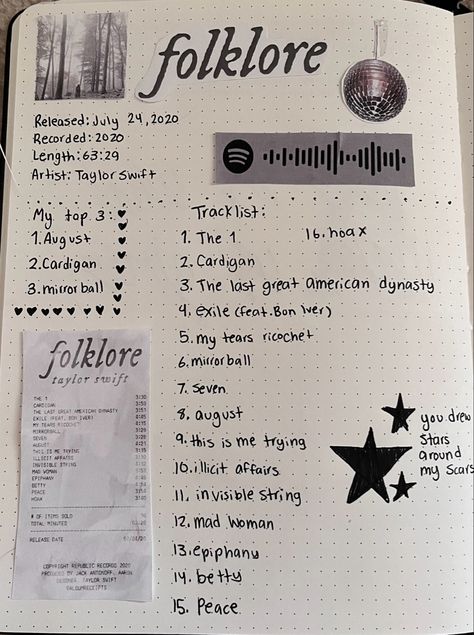 folklore
Released: July 24, 2020
Recorded: 2020
Length: 63:29
Artist: Taylor Swift
My top 3:
1. August
2. Cardigan
3. mirrorball
Tracklist:
1. The 1
2. Cardigan
3. The last great american dynasty
4. exile (feat. Bon iver)
5. my tears ricochet
6. mirrorball
7. seven
8. august
9. this is me trying
10. illicit affairs
11. invisible string
12. mad woman
13. epiphany
14. betty
15. Peace
16. hoax
you drew
stars
around
my scars
folklore
taylor swift
THE 1 3:30
CARDIGAN 3:59
THE LAST GREAT AMERICAN DYNASTY
EXILE (FEAT. BON IVER)
MY TEARS RICOCHET
MIRRORBALL
SEVEN
AUGUST
THIS IS ME TRYING
ILLICIT AFFAIRS
INVISIBLE STRING
MAD WOMAN
EPIPHANY
BETTY
PEACE
HOAX
# OF ITEMS SOLD
TOTAL MINUTES
RELEASE DATE
COPYRIGHT REPUBLIC RECORDS 2020
PRODUCED BY JACK ANTONOFF, AARON
DESSNER, TAYLOR SWIFT
@ALBUMRECEIPTS